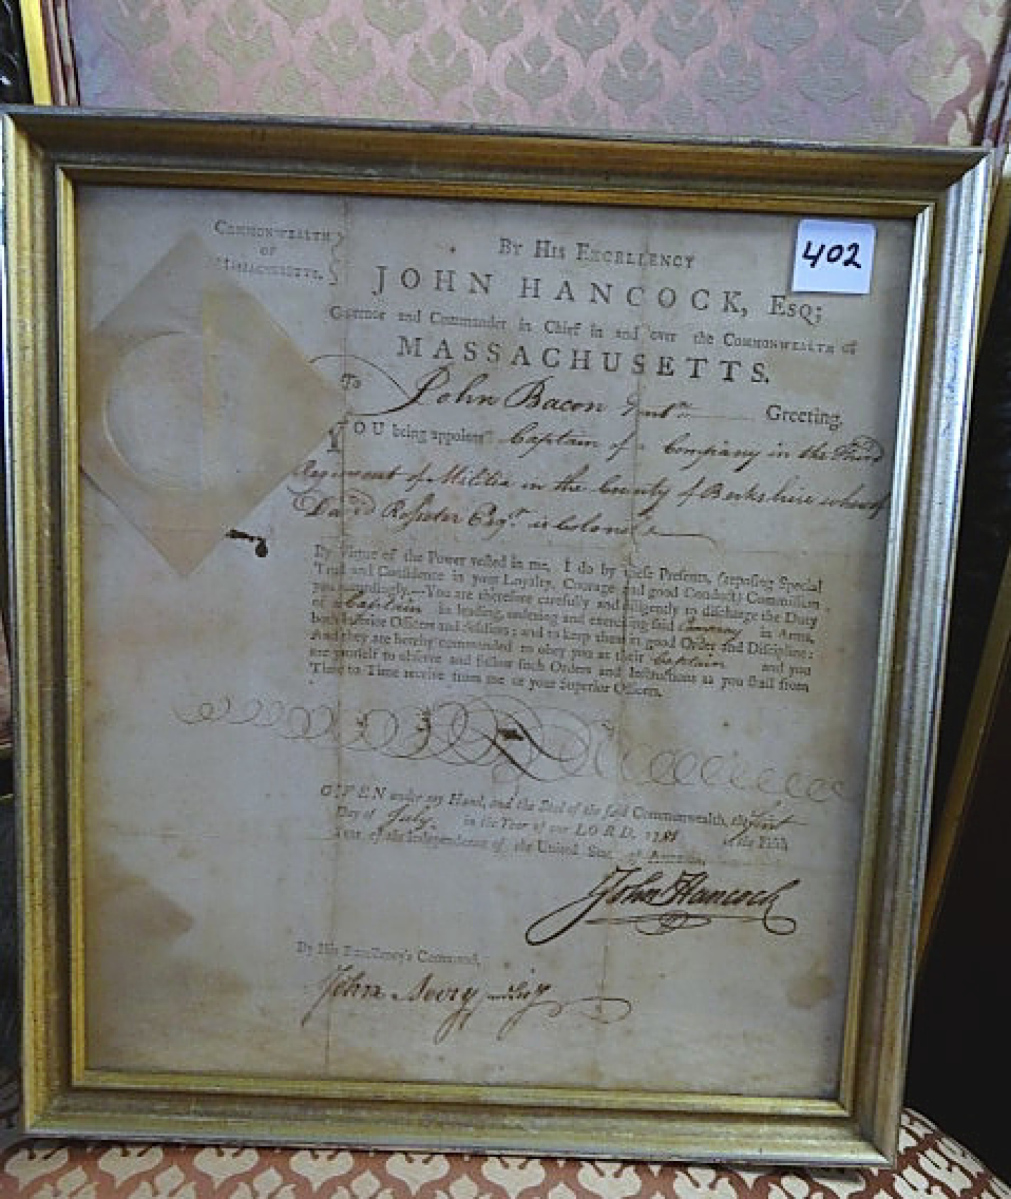 402
COMMONWEALTH
OF
MASSACHUSETTS.
BY HIS EXCELLENCY
JOHN HANCOCK, ESQ;
Governor and Commander in Chief in and over the COMMONWEALTH of
MASSACHUSETTS.
To John Bacon Gentn. Greeting.
YOU being appointed Captain of a Company in the Third
Regiment of Militia in the County of Berkshire whereof
David Rosseter Esqr. is Colonel
By Virtue of the Power vested in me, I do by these Presents, (reposing Special
Trust and Confidence in your Loyalty, Courage and good Conduct) Commission
you accordingly.—You are therefore carefully and diligently to discharge the Duty
of a Captain in leading, ordering and exercising said Company in Arms,
both Inferior Officers and Soldiers; and to keep them in good Order and Discipline:
And they are hereby commanded to obey you as their Captain and you
are yourself to observe and follow such Orders and Instructions as you shall from
Time to Time receive from me or your Superior Officers.
GIVEN under my Hand, and the Seal of the said Commonwealth, the first
Day of July in the Year of our LORD, 1781 in the Fifth
Year of the Independence of the United States of America.
John Hancock
By His Excellency's Command,
John Avery